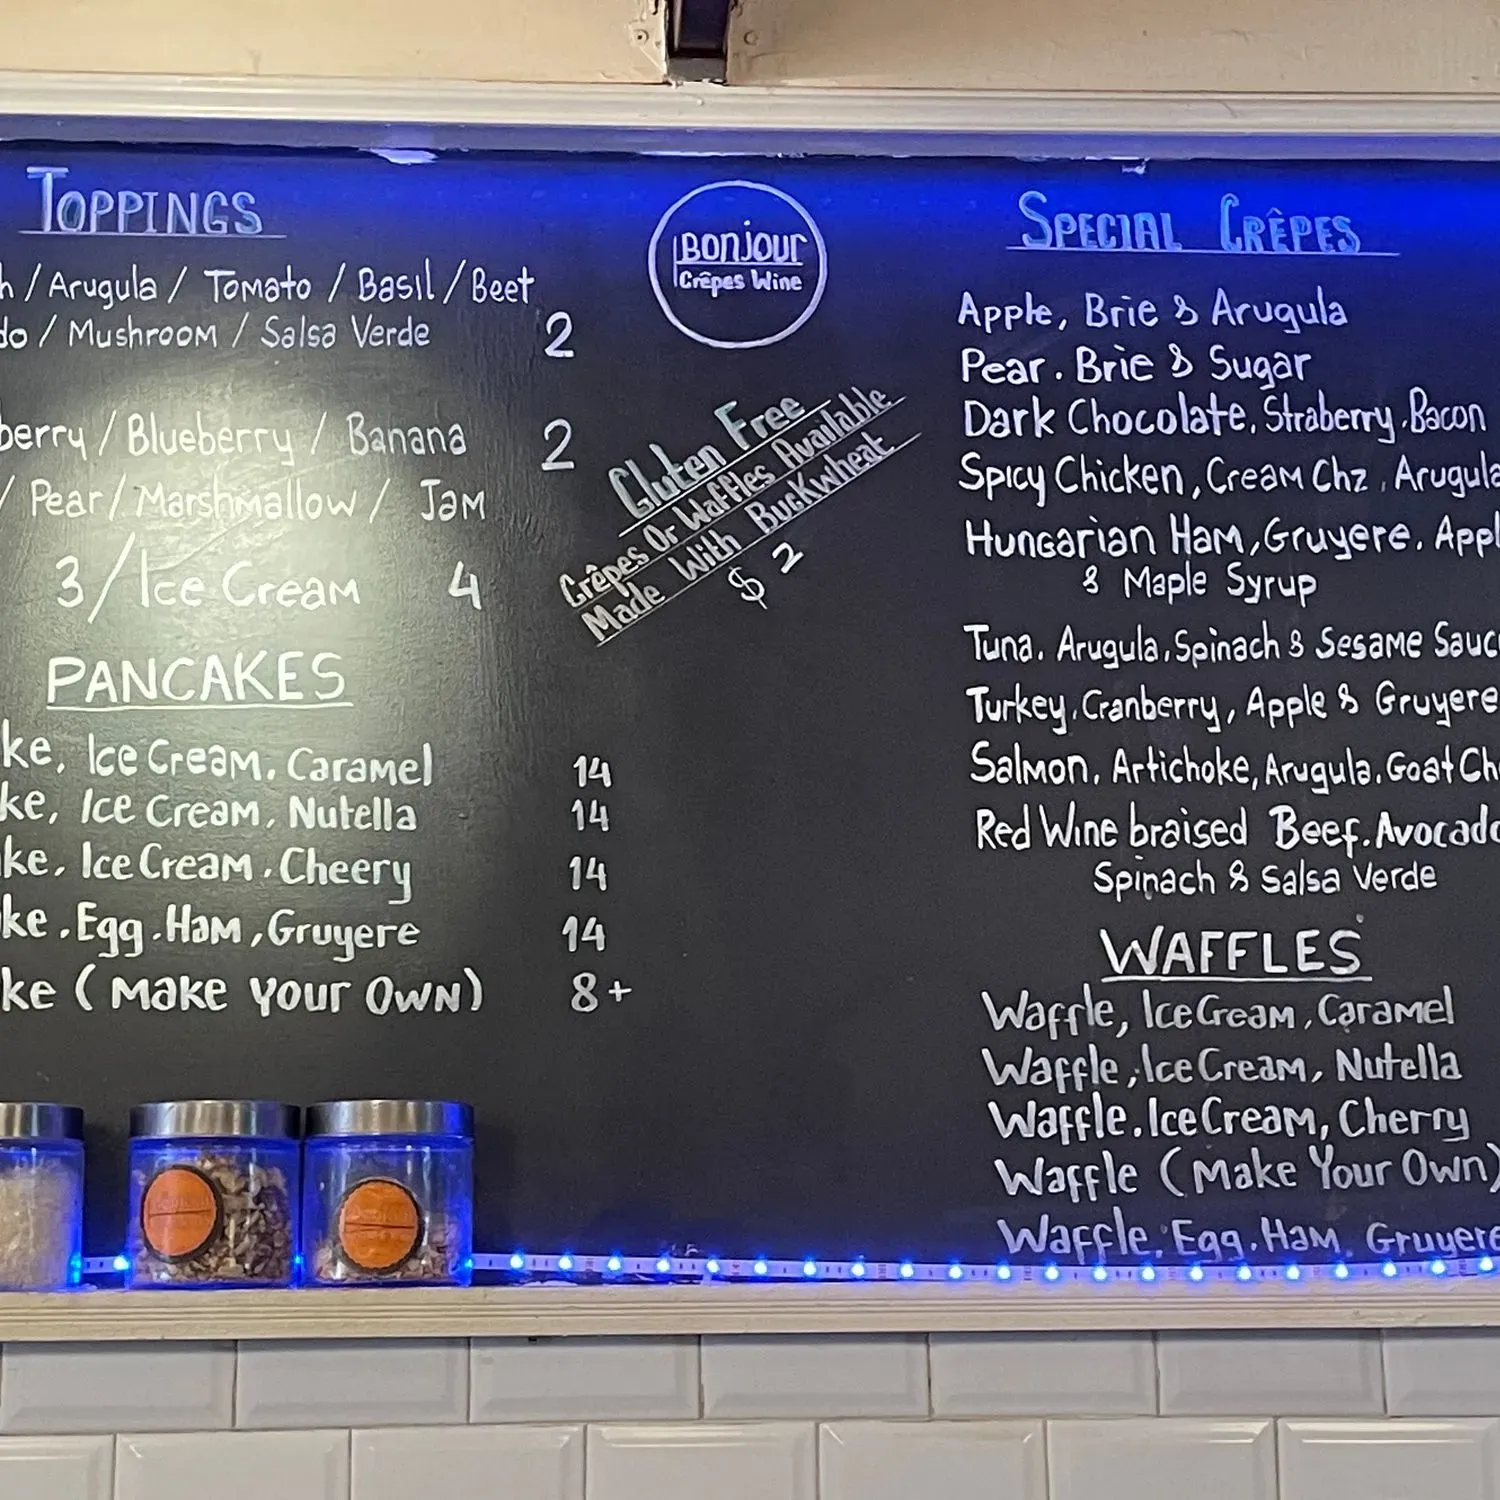 TOPPINGS
h / Arugula / Tomato / Basil / Beet
do / Mushroom / Salsa Verde 2
berry / Blueberry / Banana 2
/ Pear / Marshmallow / Jam
3 / Ice Cream 4
PANCAKES
ke, Ice Cream, Caramel 14
ke, Ice Cream, Nutella 14
ke, Ice Cream, Cheery 14
ke, Egg, Ham, Gruyere 14
ke (Make Your Own) 8+
Bonjour
Crêpes Wine
Gluten Free
Crêpes Or Waffles Available
Made With Buckwheat
$ 2
SPECIAL CRÊPES
Apple, Brie & Arugula
Pear, Brie & Sugar
Dark Chocolate, Straberry, Bacon
Spicy Chicken, Cream Chz, Arugula
Hungarian Ham, Gruyere, Appl
& Maple Syrup
Tuna, Arugula, Spinach & Sesame Sauc
Turkey, Cranberry, Apple & Gruyere
Salmon, Artichoke, Arugula, Goat Ch
Red Wine braised Beef, Avocado
Spinach & Salsa Verde
WAFFLES
Waffle, Ice Cream, Caramel
Waffle, Ice Cream, Nutella
Waffle, Ice Cream, Cherry
Waffle (Make Your Own)
Waffle, Egg, Ham, Gruyere